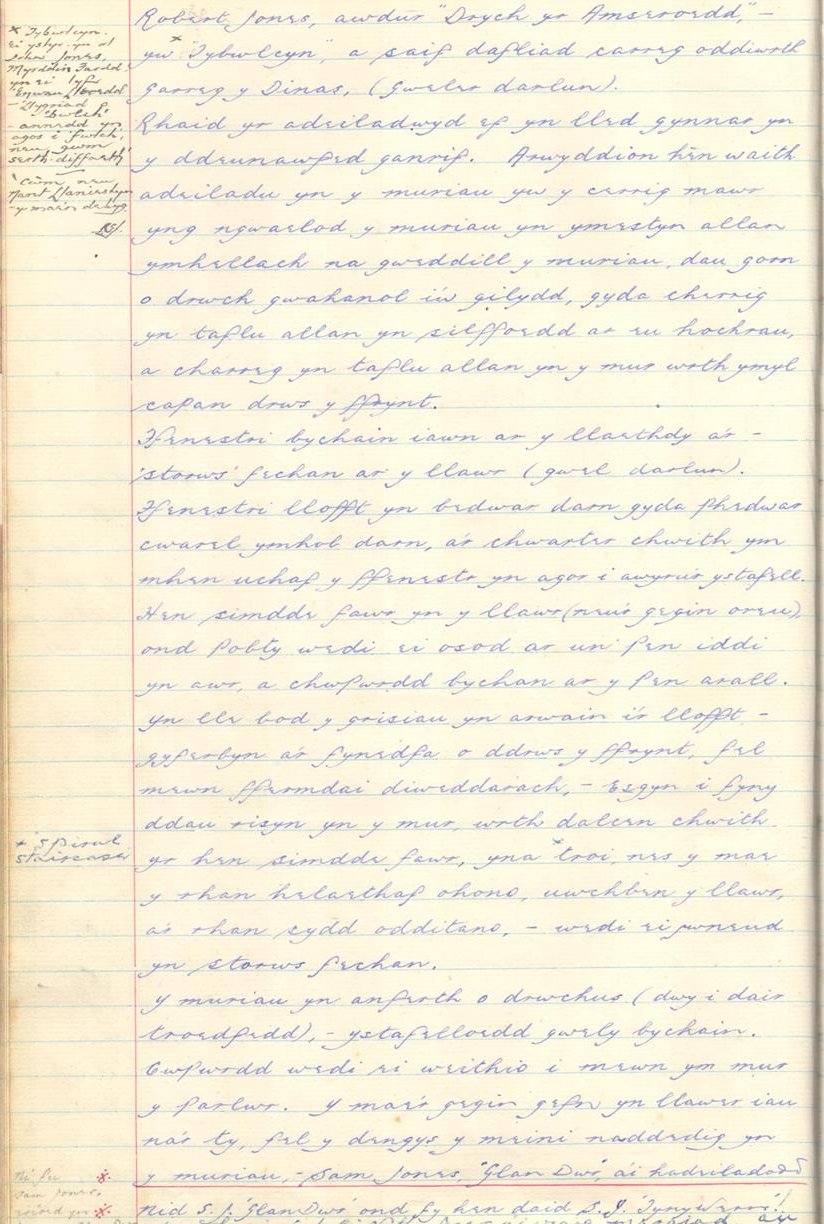 Robert Jones, awdur "Drych yr Amseroedd", -
yw × "Tybwlcyn", a saif dafliad carreg oddiwrth
Garreg y Dinas, (Gweler darlun).
Rhaid yr adeiladwyd ef yn lled gynnar yn
y ddeunawfed ganrif. Arwyddion hên waith
adeiladu yn y muriau yw y cerrig mawr
yng ngwaelod y muriau yn ymestyn allan
ymhellach na gweddill y muriau, dau gorn
o drwch gwahanol i'w gilydd, gyda cherrig
yn taflu allan yn silffoedd ar eu hochrau,
a charreg yn taflu allan yn y mur wrth ymyl
capan drws y ffrynt.
Ffenestri bychain iawn ar y llaethdy a'r -
'storws' fechan ar y llawr (gwel darlun).
Ffenestri llofft yn bedwar darn gyda phedwar
cwarel ymhob darn, a'r chwarter chwith ym
mhen uchaf y ffenestr yn agor i awyru'r ystafell.
Hen simdde fawr yn y llawr (neu'r gegin oreu),
ond Pobty wedi ei osod ar un pen iddi
yn awr, a chwpwrdd bychan ar y pen arall.
Yn lle bod y grisiau yn arwain i'r llofft -
gyferbyn a'r fynedfa o ddrws y ffrynt, fel
mewn ffermdai diweddarach, - Esgyn i fyny
ddau risyn yn y mur, wrth dalcen chwith
yr hen simdde fawr, yna × troi, nes y mae
y rhan helaethaf ohono, uwchben y llawr,
a'r rhan sydd odditano, - wedi ei wneud
yn storws fechan.
Y muriau yn anferth o drwchus (dwy i dair
troedfedd), - ystafelloedd gwely bychain.
Cwpwrdd wedi ei weithio i mewn ym mur
y parlwr. Y mae'r gegin gefn yn llawer iau
na'r ty, fel y dengys y meini naddedig yn
y muriau, - Sam Jones, "Glan Dwr", a'i hadeiladodd
Nid S. J. 'Glan Dwr' ond fy hen daid S. J. 'Tynywerns'!
× Tybwlcyn.
ei ystyr yn ol
John Jones,
Myrddin Fardd
yn ei lyfr
'Enwau Lleoedd'
'Bwlch'
- annedd yn
agos i fwlch,
neu gwm
serth-diffaeth
'Cwm neu
Nant Llaniestyn
- y mae'n debyg.
+ 'Spiral
staircase'
Ni fu ×
Sam Jones,